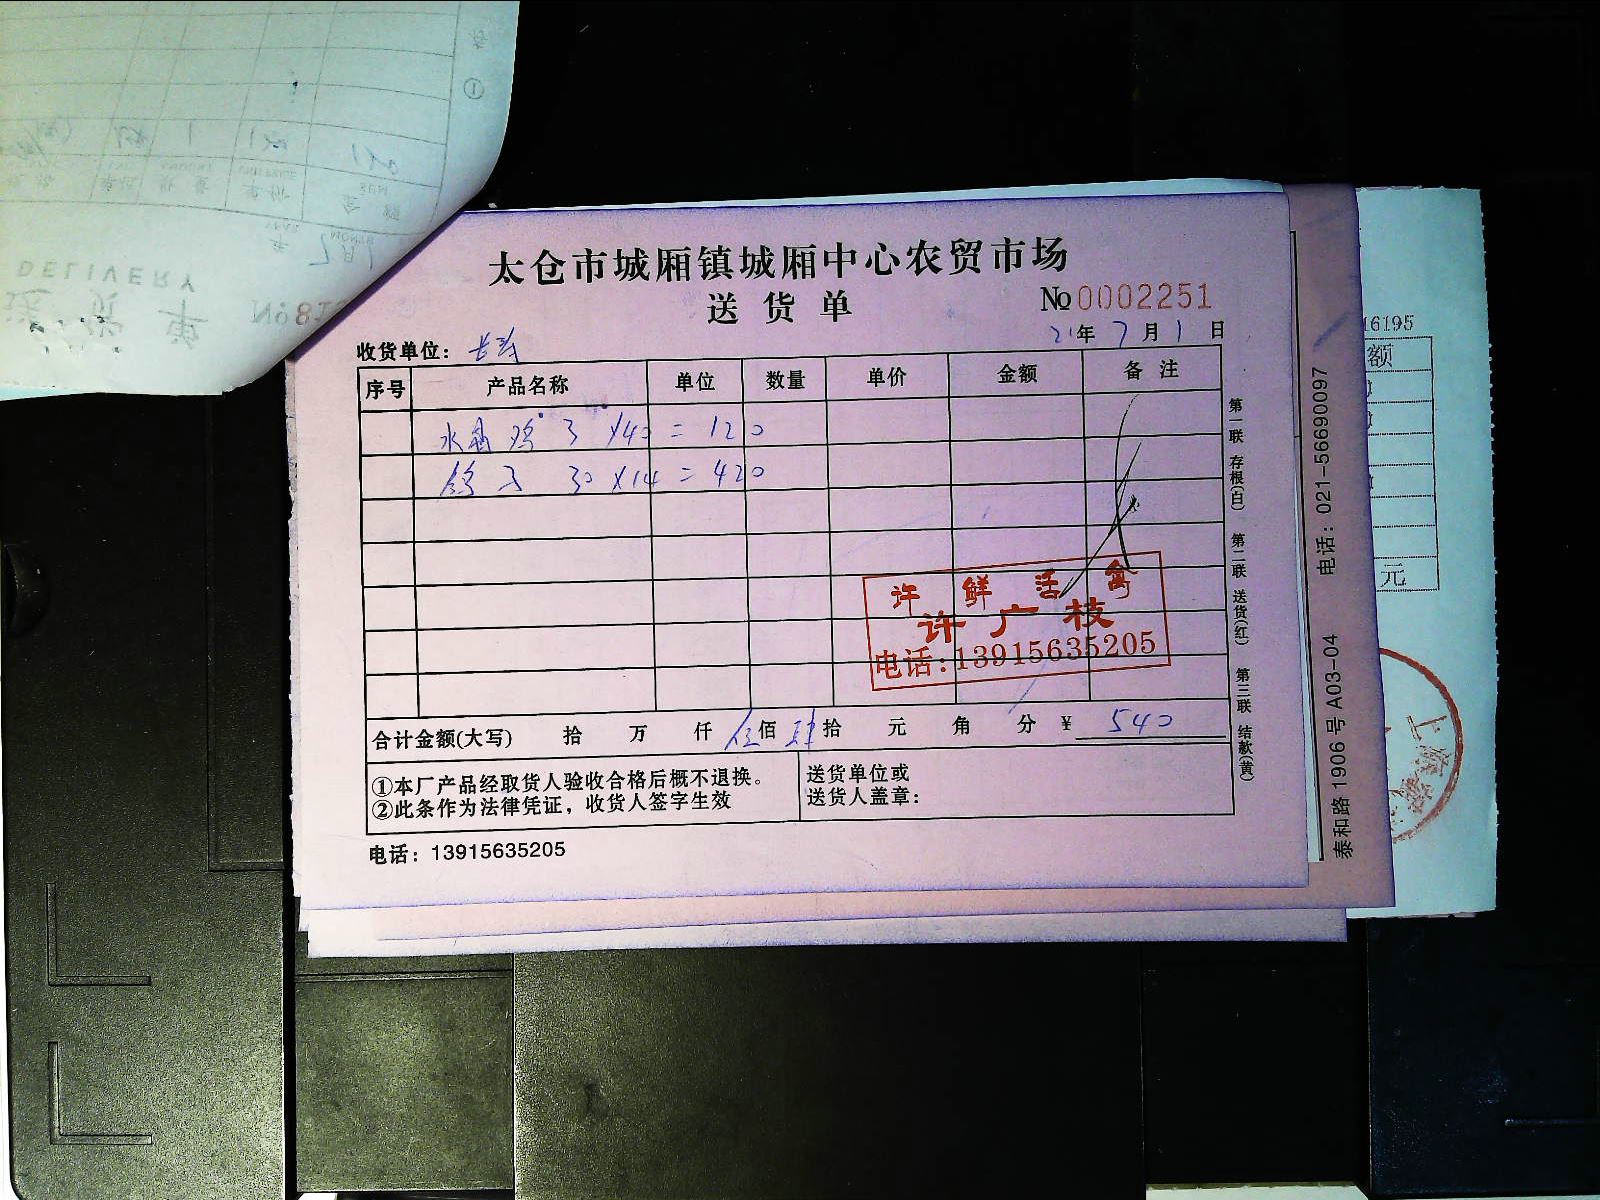 DELIVERY
送货单
№81
太仓市城厢镇城厢中心农贸市场
送货单
№0002251
收货单位：长寿
21年7月1日
序号 产品名称 单位 数量 单价 金额 备注
水晶鸡 3 X40=120
鸽子 30X14=420
合计金额(大写) 拾 万 仟 伍佰 肆拾 元 角 分 ¥ 540
①本厂产品经取货人验收合格后概不退换。
②此条作为法律凭证，收货人签字生效
送货单位或
送货人盖章：
电话：13915635205
许鲜活禽
许广枝
电话:13915635205
第一联 存根(白) 第二联 送货(红) 第三联 结款(黄)
泰和路1906号A03-04 电话：021-56690097
16195
额
元